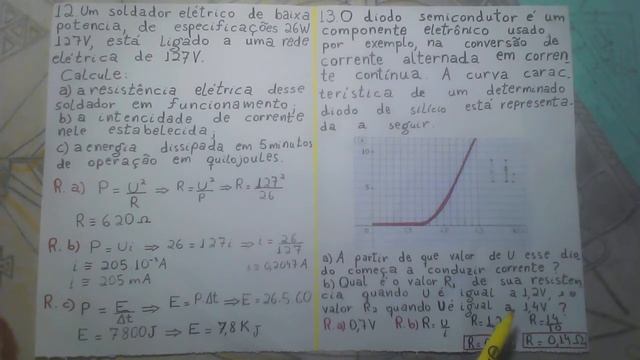 12. Um soldador elétrico de baixa
potencia, de especificações 26W
127V, está ligado a uma rede
elétrica de 127V.
Calcule:
a) a resistência elétrica desse
soldador em funcionamento;
b) a intencidade de corrente
nele estabelecida;
c) a energia dissipada em 5 minutos
de operação em quilojoules.
R. a) P = U²/R ⇒ R = U²/P ⇒ R = 127²/26
R ≅ 620 Ω
R. b) P = Ui ⇒ 26 = 127i ⇒ i = 26/127
i ≅ 205 10⁻³A i ≅ 0,2047A
i ≅ 205 mA
R. c) P = E/Δt ⇒ E = P.Δt ⇒ E = 26.5.60
E = 7800J ⇒ E = 7,8KJ
13. O diodo semicondutor é um
componente eletrônico usado,
por exemplo, na conversão de
corrente alternada em corren
te contínua. A curva carac_
terística de um determinado
diodo de silício está representa_
da a seguir.
10
5
a) A partir de que valor de U esse dio_
do começa a conduzir corrente?
b) Qual é o valor R₁ de sua resisten
cia quando U é igual a 1,2V,
valor R₂ quando U é igual a 1,4V?
R. a) 0,7V R. b) R = U/i R = 1,4/10
R = 0,14Ω